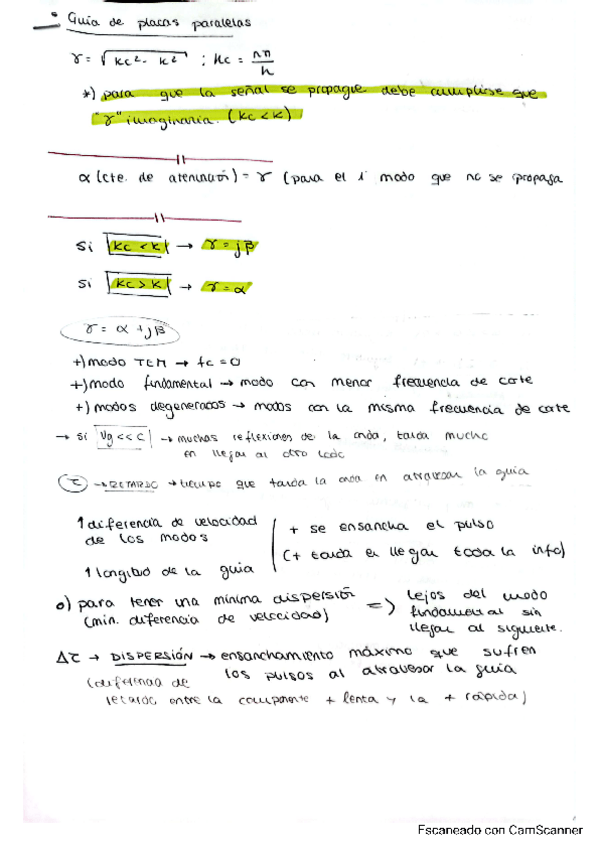 • Guía de placas paralelas
γ = √(kc² - k²) ; kc = nπ/h
*) para que la señal se propague debe cumplirse que
"γ" imaginaria. (kc < k)
α (cte. de atenuación) = γ (para el 1º modo que no se propaga
Si kc < k → γ = jβ
Si kc > k → γ = α
γ = α + jβ
+) modo TEM → fc = 0
+) modo fundamental → modo con menor frecuencia de corte
+) modos degenerados → modos con la misma frecuencia de corte
→ si Vg << c → muchas reflexiones de la onda, tarda mucho
en llegar al otro lado
τ → RETARDO → tiempo que tarda la onda en atravesar la guía
↑ diferencia de velocidad
de los modos
↑ longitud de la guia
+ se ensancha el pulso
(+ tarda en llegar toda la info)
o) para tener una mínima dispersión
(min. diferencia de velocidad)
=> lejos del modo
fundamental sin
llegar al siguiente.
Δτ → DISPERSIÓN → ensanchamiento máximo que sufren
los pulsos al atravesar la guía
(diferencia de
retardo entre la componente + lenta y la + rápida)
Escaneado con CamScanner